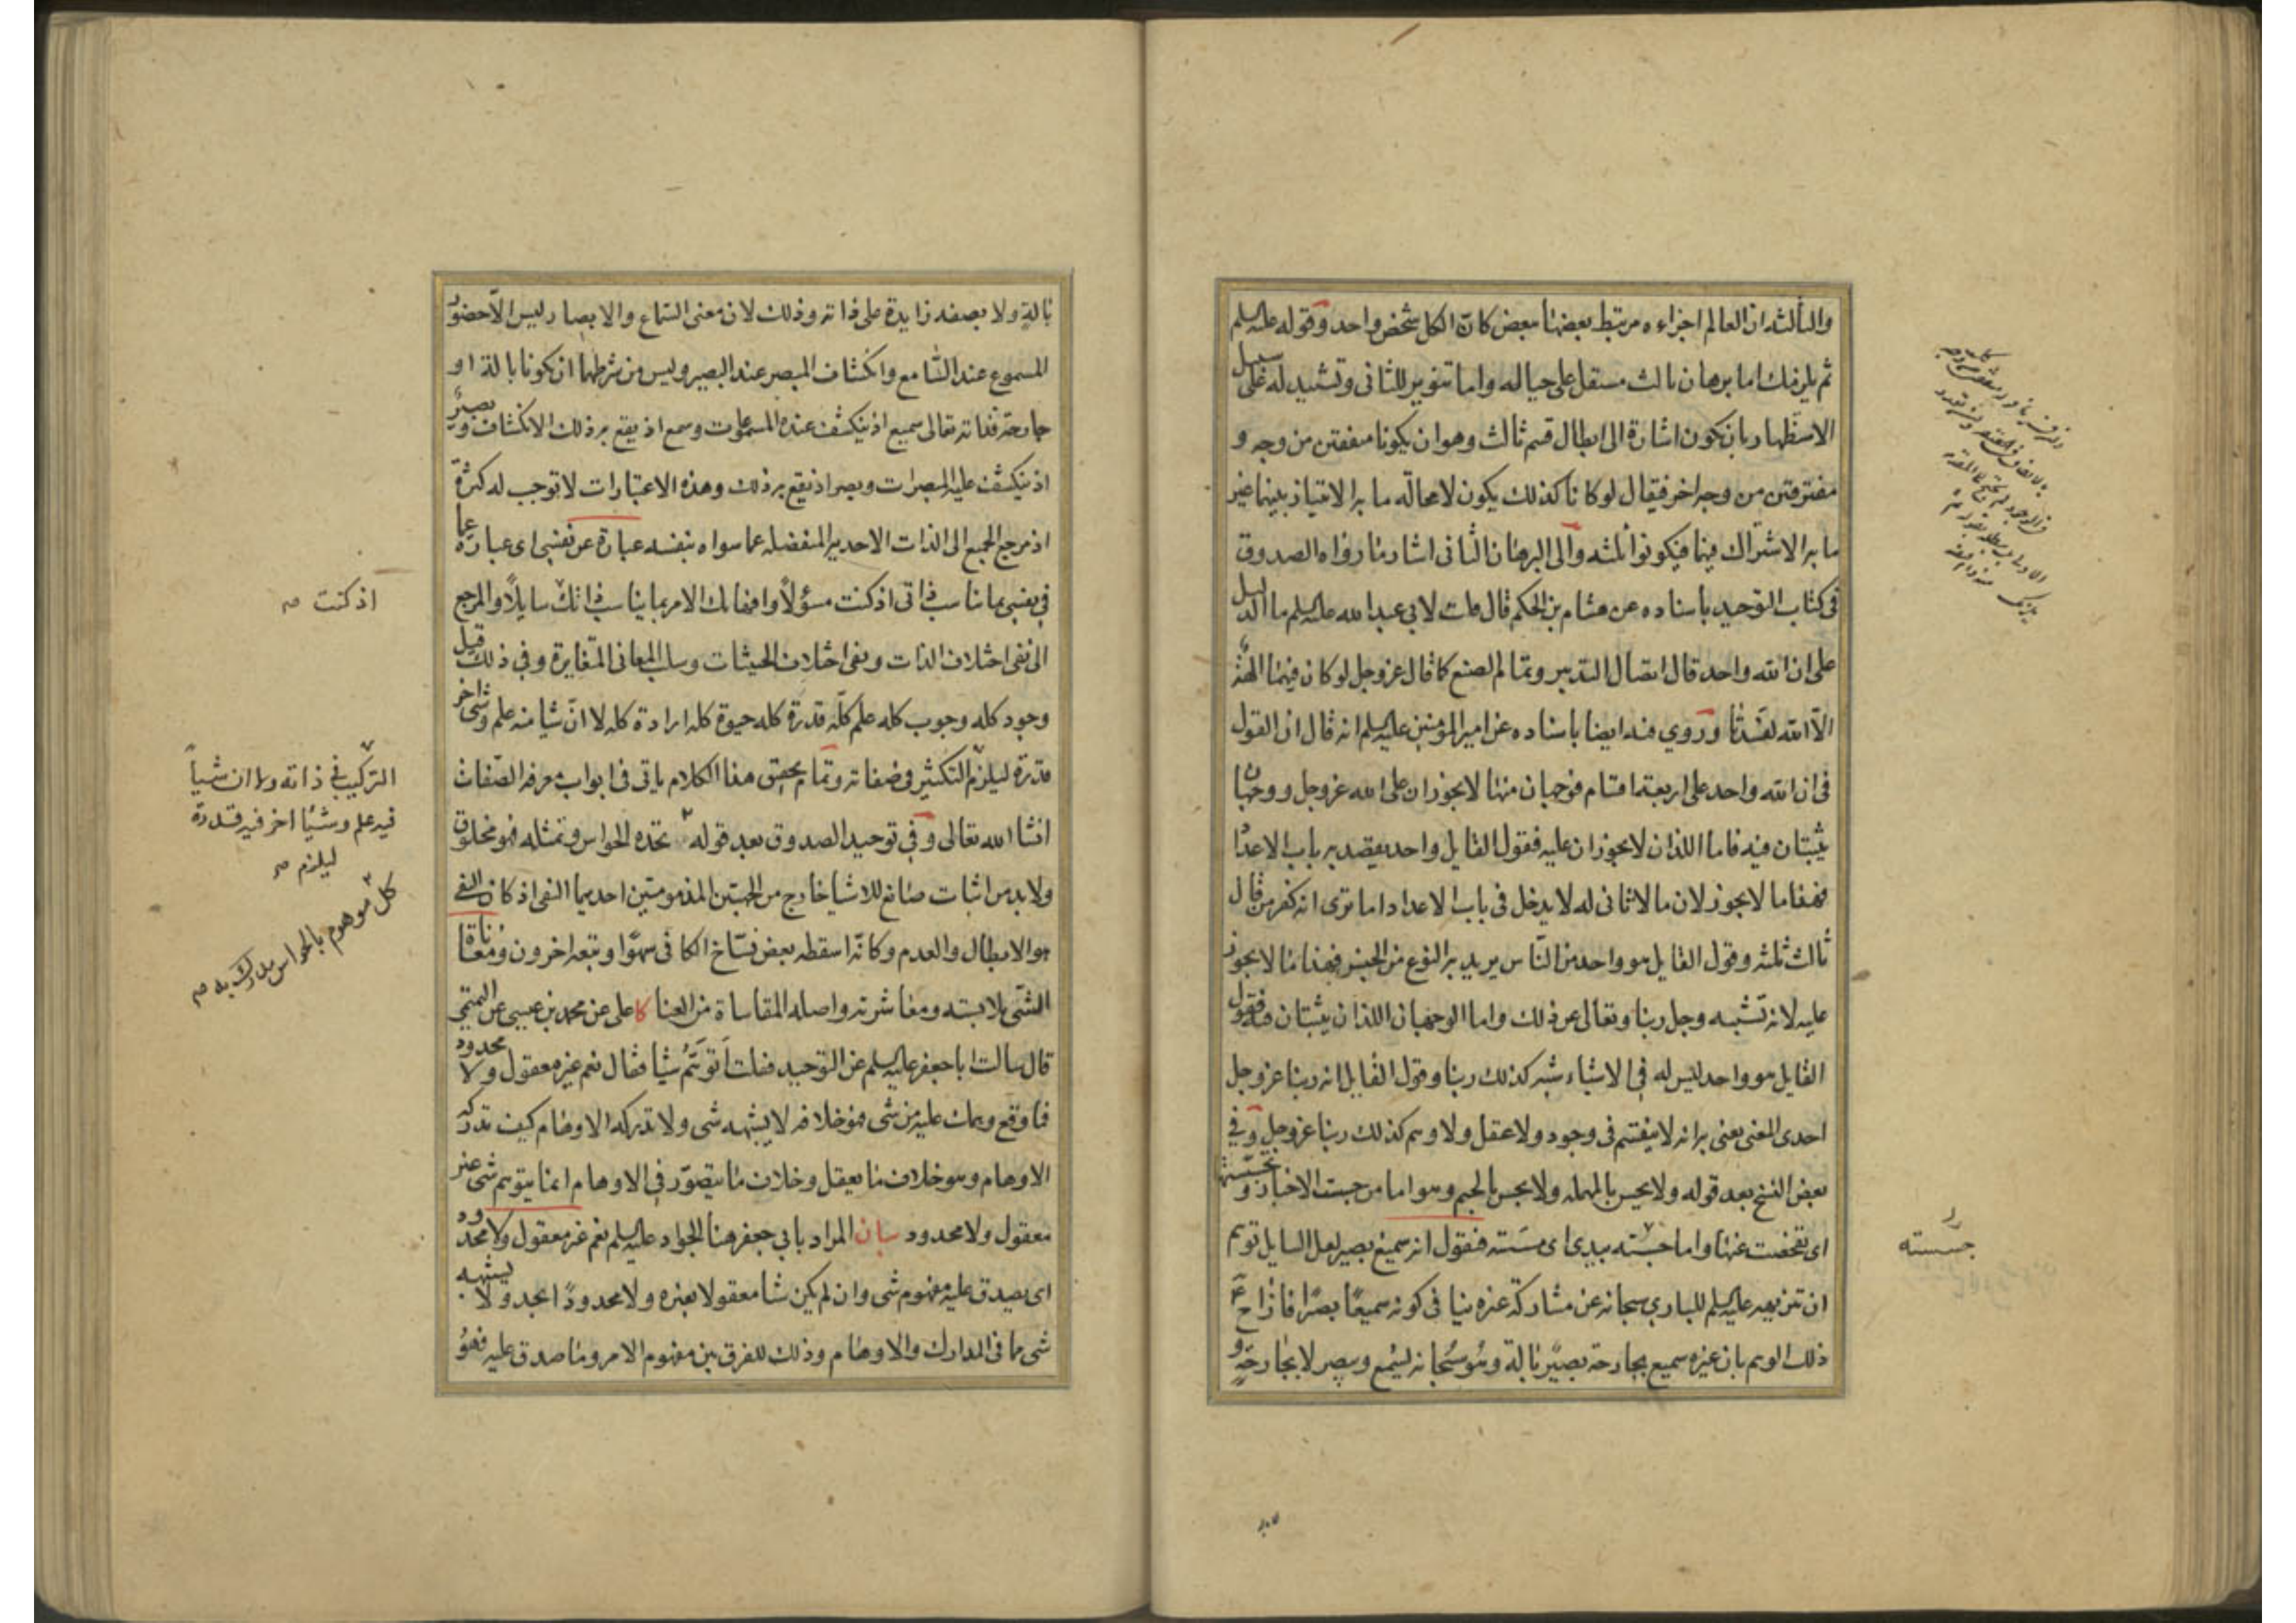 والثالث ان العالم اجزاءه مرتبط بعضها ببعض كان الكل شخص واحد وقوله عليه السلم
ثم يلزمك اما برهان ثالث مستقل على حياله واما تنوير للثانى وتشييد له على سبيل
الاستظهار بان يكون اشارة الى ابطال قسم ثالث وهو ان يكونا متفقين من وجه و
مفترقين من وجه اخر فيقال لو كانا كذلك يكون لا محالة ما به الامتياز بينهما غير
ما به الاشتراك فيهما فيكونوا ثلثه والى البرهان الثانى اشار بما رواه الصدوق
فى كتاب التوحيد باسناده عن هشام بن الحكم قال قلت لابى عبد الله عليه السلم ما الدليل
على ان الله واحد قال اتصال التدبير وتمام الصنع كما قال عز وجل لو كان فيهما الهة
الا الله لفسدتا وروى فيه ايضا باسناده عن امير المؤمنين عليه السلم انه قال ان القول
فى ان الله واحد على اربعة اقسام فوجهان منها لا يجوزان على الله عز وجل ووجهان
يثبتان فيه فاما اللذان لا يجوزان عليه فقول القايل واحد يقصد به باب الاعداد
فهذا ما لا يجوز لان ما لا ثانى له لا يدخل فى باب الاعداد اما ترى انه كفر من قال
ثالث ثلثه وقول القايل هو واحد من الناس يريد به النوع من الجنس فهذا ما لا يجوز
عليه لانه تشبيه وجل ربنا وتعالى عن ذلك واما الوجهان اللذان يثبتان فيه فقول
القايل هو واحد ليس له فى الاشياء شبه كذلك ربنا وقول القايل انه ربنا عز وجل
احدى المعنى يعنى به انه لا ينقسم فى وجود ولا عقل ولا وهم كذلك ربنا عز وجل وفى
بعض النسخ بعد قوله ولا يحس بالمهمله ولا يجس بالجيم وهو اما من جست الاخبار وتجسستها
اى تفحصت عنها واما جسته بيدى اى مسته فنقول انه سميع بصير لعل السايل توهم
ان تنزيهه عليه السلم للبارى سبحانه عن مشاركة غيره ينافى كونه سميعا بصيرا فازاح ع
ذلك الوهم بان غيره سميع بجارحة بصير بالة وهو سبحانه يسمع ويبصر لا بجارحة و
جسسته
بالة ولا بصفه زايدة على ذاته وذلك لان معنى السماع والابصار ليس الا حضور
المسموع عند السامع وانكشاف المبصر عند البصير وليس من شرطهما ان يكونا بالة او
جارحة فذاته تعالى سميع اذ ينكشف عنده المسموعات وسمع اذ يقع به ذلك الانكشاف وبصير
اذ ينكشف عليه المبصرات وبصر اذ يقع به ذلك وهذه الاعتبارات لا توجب له كثرة
اذ مرجع الجميع الى الذات الاحديه المنفصله عما سواه بنفسه عبارة عن نفسى اى عبارة عما
فى نفسى بما يناسب ذاتى اذ كنت مسؤلا وافهاما لك الامر بما يناسب ذاتك سايلا والمرجع
الى نفى اختلاف الذات ونفى اختلاف الحيثيات وسلب المعانى المتغايرة وفى ذلك قيل
وجود كله وجوب كله علم كله قدرة كله حيوة كله ارادة كله لا ان شيا منه علم وشى اخر
قدرة ليلزم التكثير فى صفاته وتمام تحقيق هذا الكلام ياتى فى ابواب معرفه الصفات
انشا الله تعالى وفى توحيد الصدوق بعد قوله تحده الحواس وتمثله فهو مخلوق
ولا بد من اثبات صانع للاشيا خارج من الجهتين المذمومتين احديهما النفى اذ كان النفى
هو الابطال والعدم وكانه اسقطه بعض نساخ الكافى سهوا وتبعه اخرون ومعاناة
الشى ملابسته ومباشرته واصله المقاساة من العنا كا على عن محمد بن عيسى عن التميمى
قال سالت ابا جعفر عليه السلم عن التوحيد فقلت أتوهم شيا فقال نعم غير معقول ولا محدود
فما وقع وهمك عليه من شى فهو خلافه لا يشبهه شى ولا تدركه الاوهام كيف تدركه
الاوهام وهو خلاف ما يعقل وخلاف ما يتصور فى الاوهام انما يتوهم شى غير
معقول ولا محدود بيان المراد بابى جعفر هنا الجواد عليه السلم نعم غير معقول ولا محدود
اى يصدق عليه مفهوم شى وان لم يكن شيا معقولا بعينه ولا محدودا بحد ولا يشبهه
شى ما فى المدارك والاوهام وذلك للفرق بين مفهوم الامر وما صدق عليه فهو
اذ كنت صح
التركيب فى ذاته ولا ان شيأ
فيه علم وشيئا اخر فيه قدرة
ليلزم صح
كل موهوم بالحواس مدرك به صح